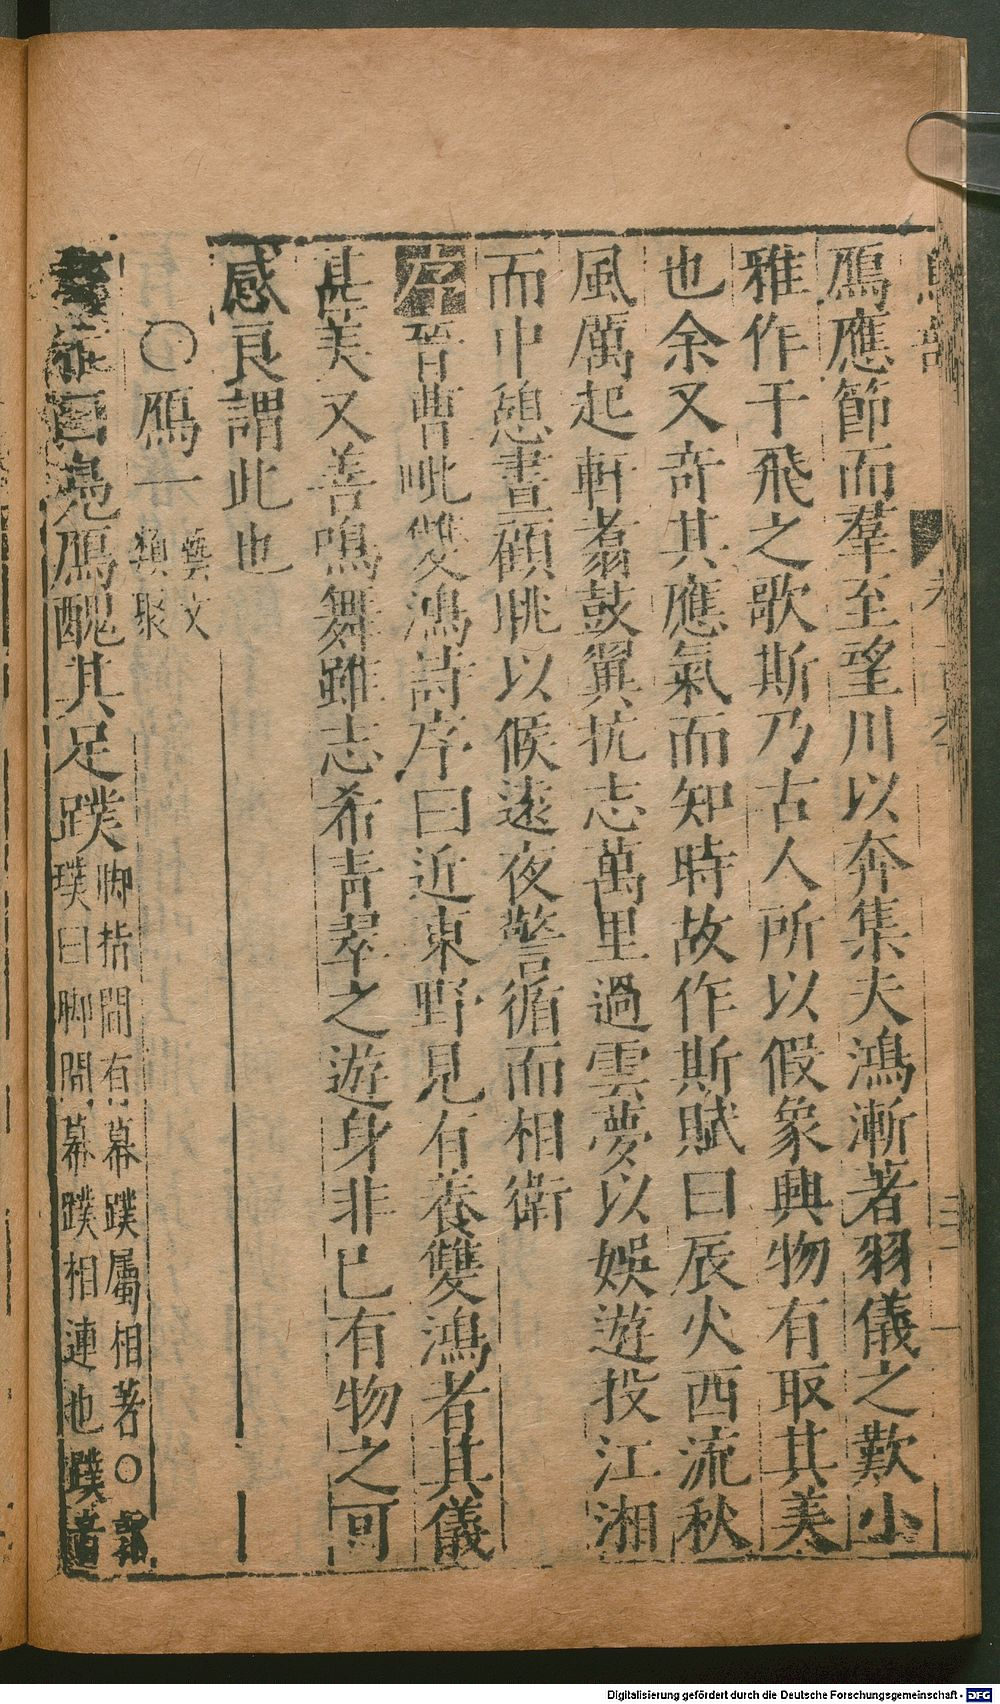 鴈應節而羣至望川以奔集夫鴻漸著羽儀之歎小
雅作于飛之歌斯乃古人所以假象興物有取其美
也余又奇其應氣而知時故作斯賦曰辰火西流秋
風厲起軒翥鼓翼抗志萬里過雲夢以娛遊投江湘
而中憩晝顧眺以候遠夜警循而相衛
序晉曹毗雙鴻詩序曰近東野見有養雙鴻者其儀
甚美又善鳴舞雖志希青翠之遊身非已有物之可
感良謂此也
○鴈一
藝文
類聚
曰鳧鴈醜其足蹼
脚指間有幕蹼屬相著○郭
璞曰脚間幕蹼相連也
Digitalisierung gefördert durch die Deutsche Forschungsgemeinschaft - DFG